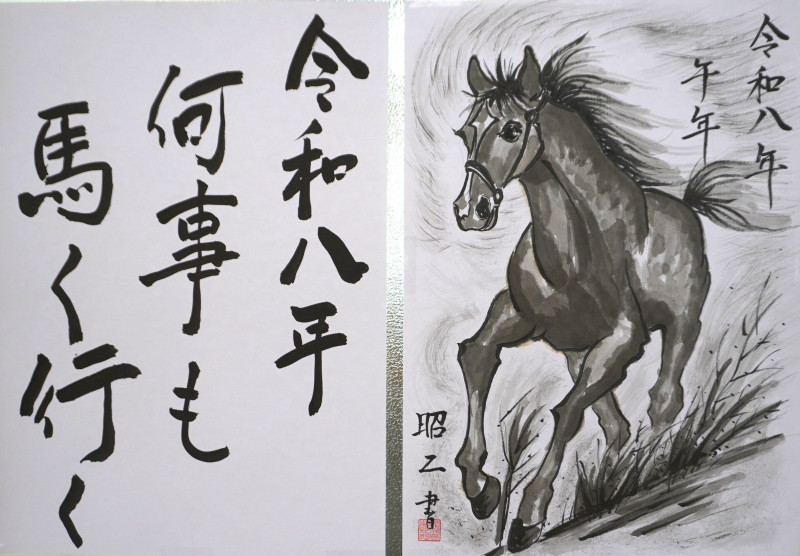 令和八年
何事も
馬く行く
令和八年
午年
昭二書